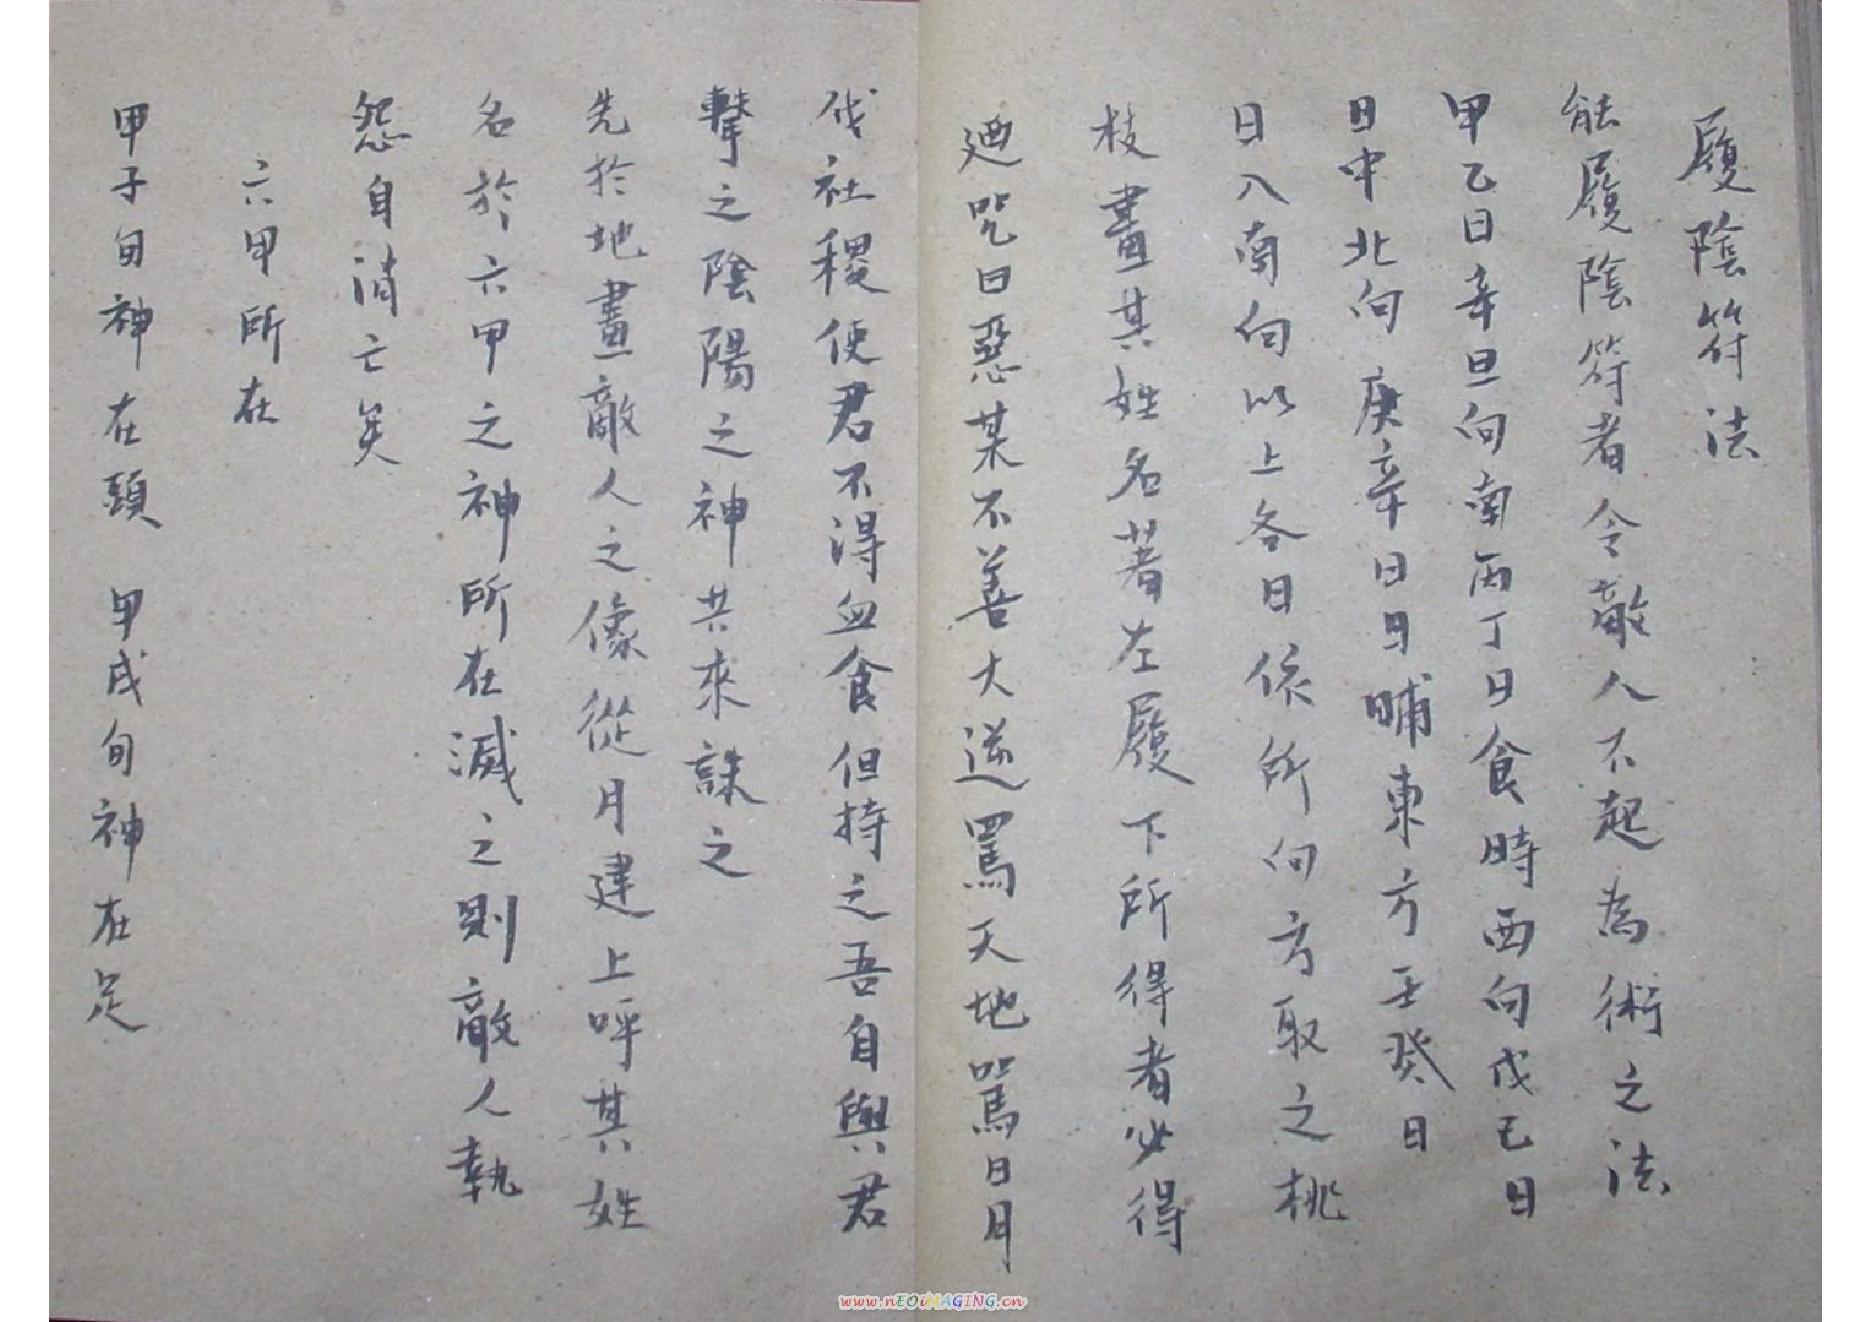 履陰符法
能履陰符者令敵人不起為術之法
甲乙日辛旦向南丙丁日食時西向戊己日
日中北向庚辛日日晡東方壬癸日
日入南向以上各日依所向方取之桃
枝畫其姓名著左履下所得者必得
廼咒曰惡某不善大逆罵天地罵日月
伐社稷使君不得血食但持之吾自與君
擊之陰陽之神共來誅之
先於地畫敵人之像從月建上呼其姓
名於六甲之神所在滅之則敵人執
怨自消亡矣
六甲所在
甲子旬神在頭 甲戌旬神在足
www.nEOiMAGING.cn